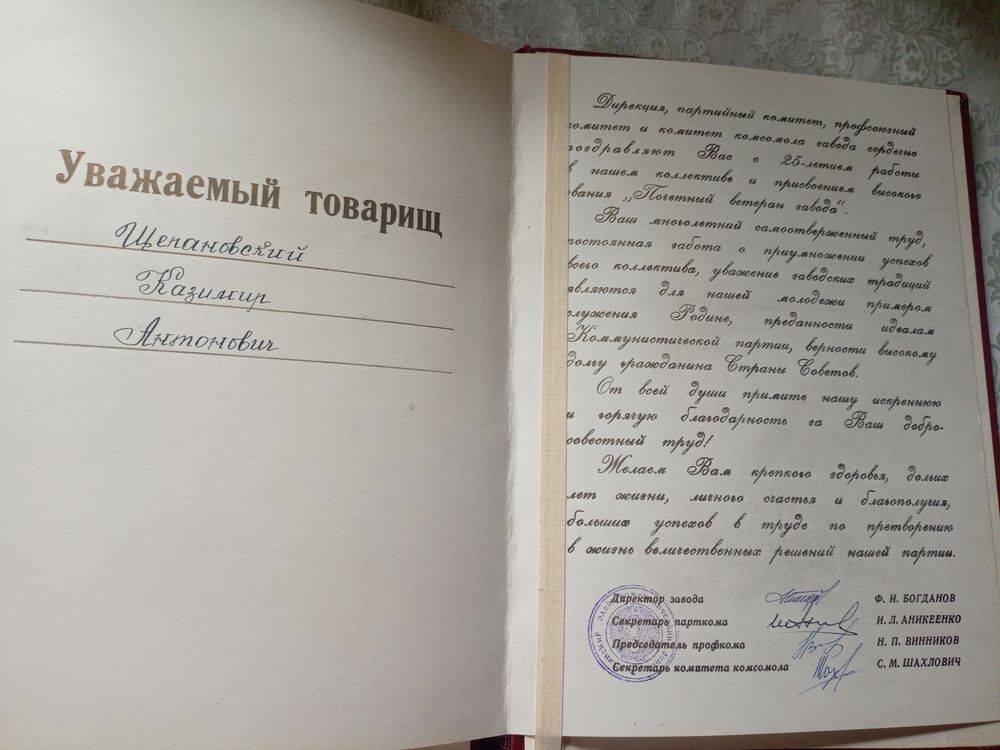 Уважаемый товарищ
Щепановский
Казимир
Антонович
Дирекция, партийный комитет, профсоюзный
комитет и комитет комсомола завода сердечно
поздравляют Вас с 25-летием работы
в нашем коллективе и присвоением высокого
звания „Почетный ветеран завода“.
Ваш многолетний самоотверженный труд,
постоянная забота о приумножении успехов
всего коллектива, уважение заводских традиций
являются для нашей молодежи примером
служения Родине, преданности идеалам
Коммунистической партии, верности высокому
долгу гражданина Страны Советов.
От всей души примите нашу искреннюю
и горячую благодарность за Ваш добро-
совестный труд!
Желаем Вам крепкого здоровья, долгих
лет жизни, личного счастья и благополучия,
больших успехов в труде по претворению
в жизнь величественных решений нашей партии.
Директор завода Ф. И. БОГДАНОВ
Секретарь парткома И. Л. АНИКЕЕНКО
Председатель профкома Н. П. ВИННИКОВ
Секретарь комитета комсомола С. М. ШАХЛОВИЧ